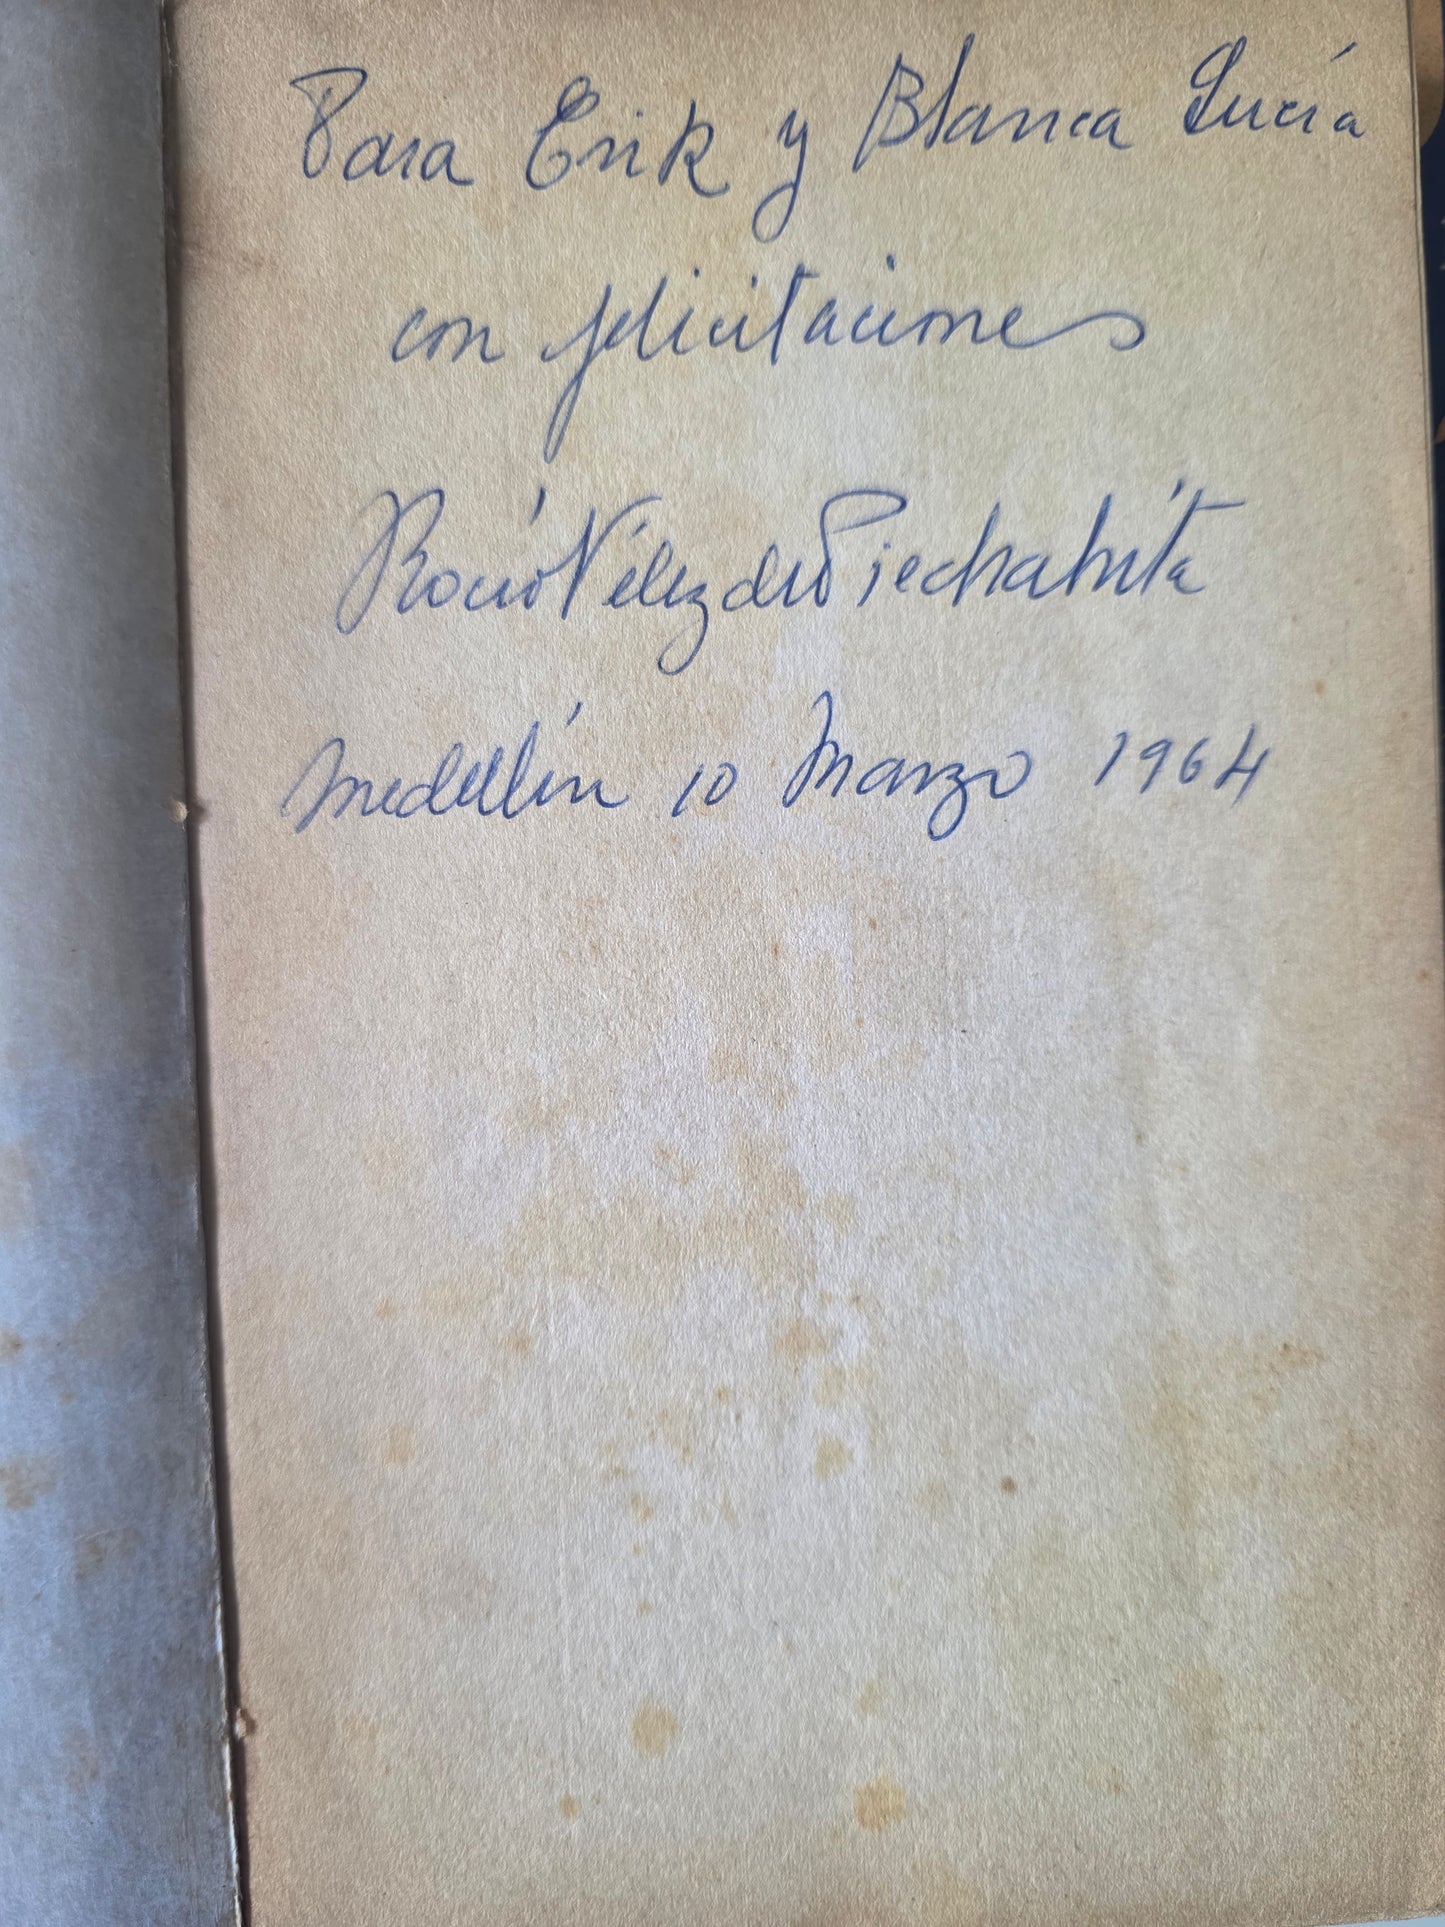 Para Erik y Blanca Lucía
con felicitaciones
Rocío Vélez de Piedrahíta
Medellín 10 Marzo 1964